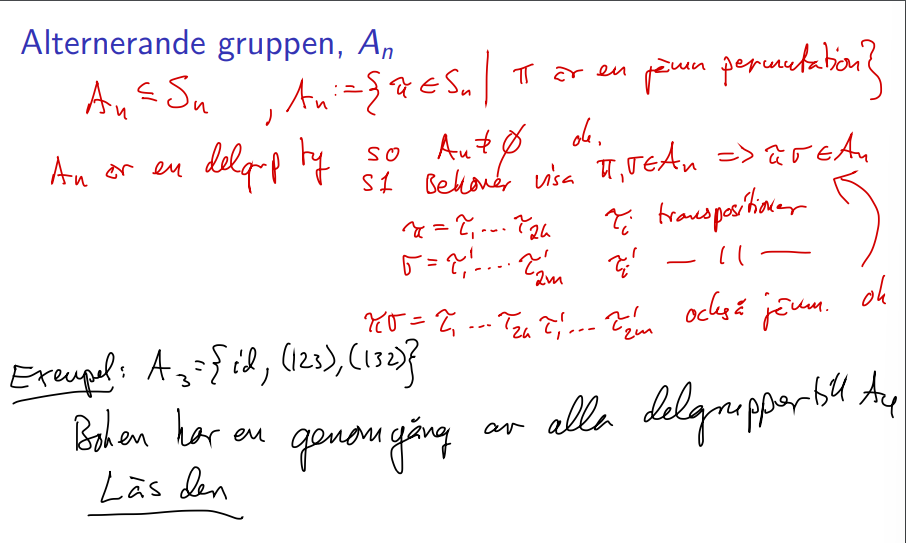 Alternerande gruppen, Aₙ
Aₙ ⊆ Sₙ , Aₙ := {π ∈ Sₙ | π är en jämn permutation}
Aₙ är en delgrp ty S0 Aₙ ≠ ∅ ok.
S1 Behöver visa π, σ ∈ Aₙ => πσ ∈ Aₙ
π = τ₁ ... τ₂ₖ τᵢ transpositioner
σ = τ₁' ... τ₂ₘ' τᵢ' — 11 —
πσ = τ₁ ... τ₂ₖ τ₁' ... τ₂ₘ' också jämn. ok
Exempel: A₃ = {id, (123), (132)}
Boken har en genomgång av alla delgrupper till A₄
Läs den